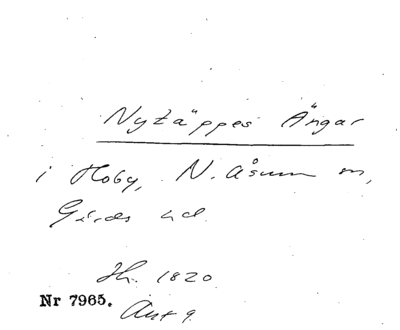 Nytäppes Ängar
i Hoby, N. Åsum sn,
Gärds hd.
Hr. 1820
Nr 7965.
Ant 9.